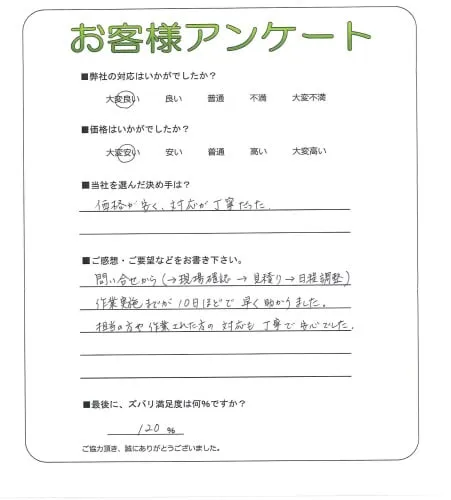 お客様アンケート
■弊社の対応はいかがでしたか？
大変良い 良い 普通 不満 大変不満
■価格はいかがでしたか？
大変安い 安い 普通 高い 大変高い
■当社を選んだ決め手は？
価格が安く、対応が丁寧だった。
■ご感想・ご要望などをお書き下さい。
問い合せから（→現場確認→見積り→日程調整）
作業実施までが10日ほどで早く助かりました。
担当の方や作業された方の対応も丁寧で安心でした。
■最後に、ズバリ満足度は何％ですか？
120 %
ご協力頂き、誠にありがとうございました。